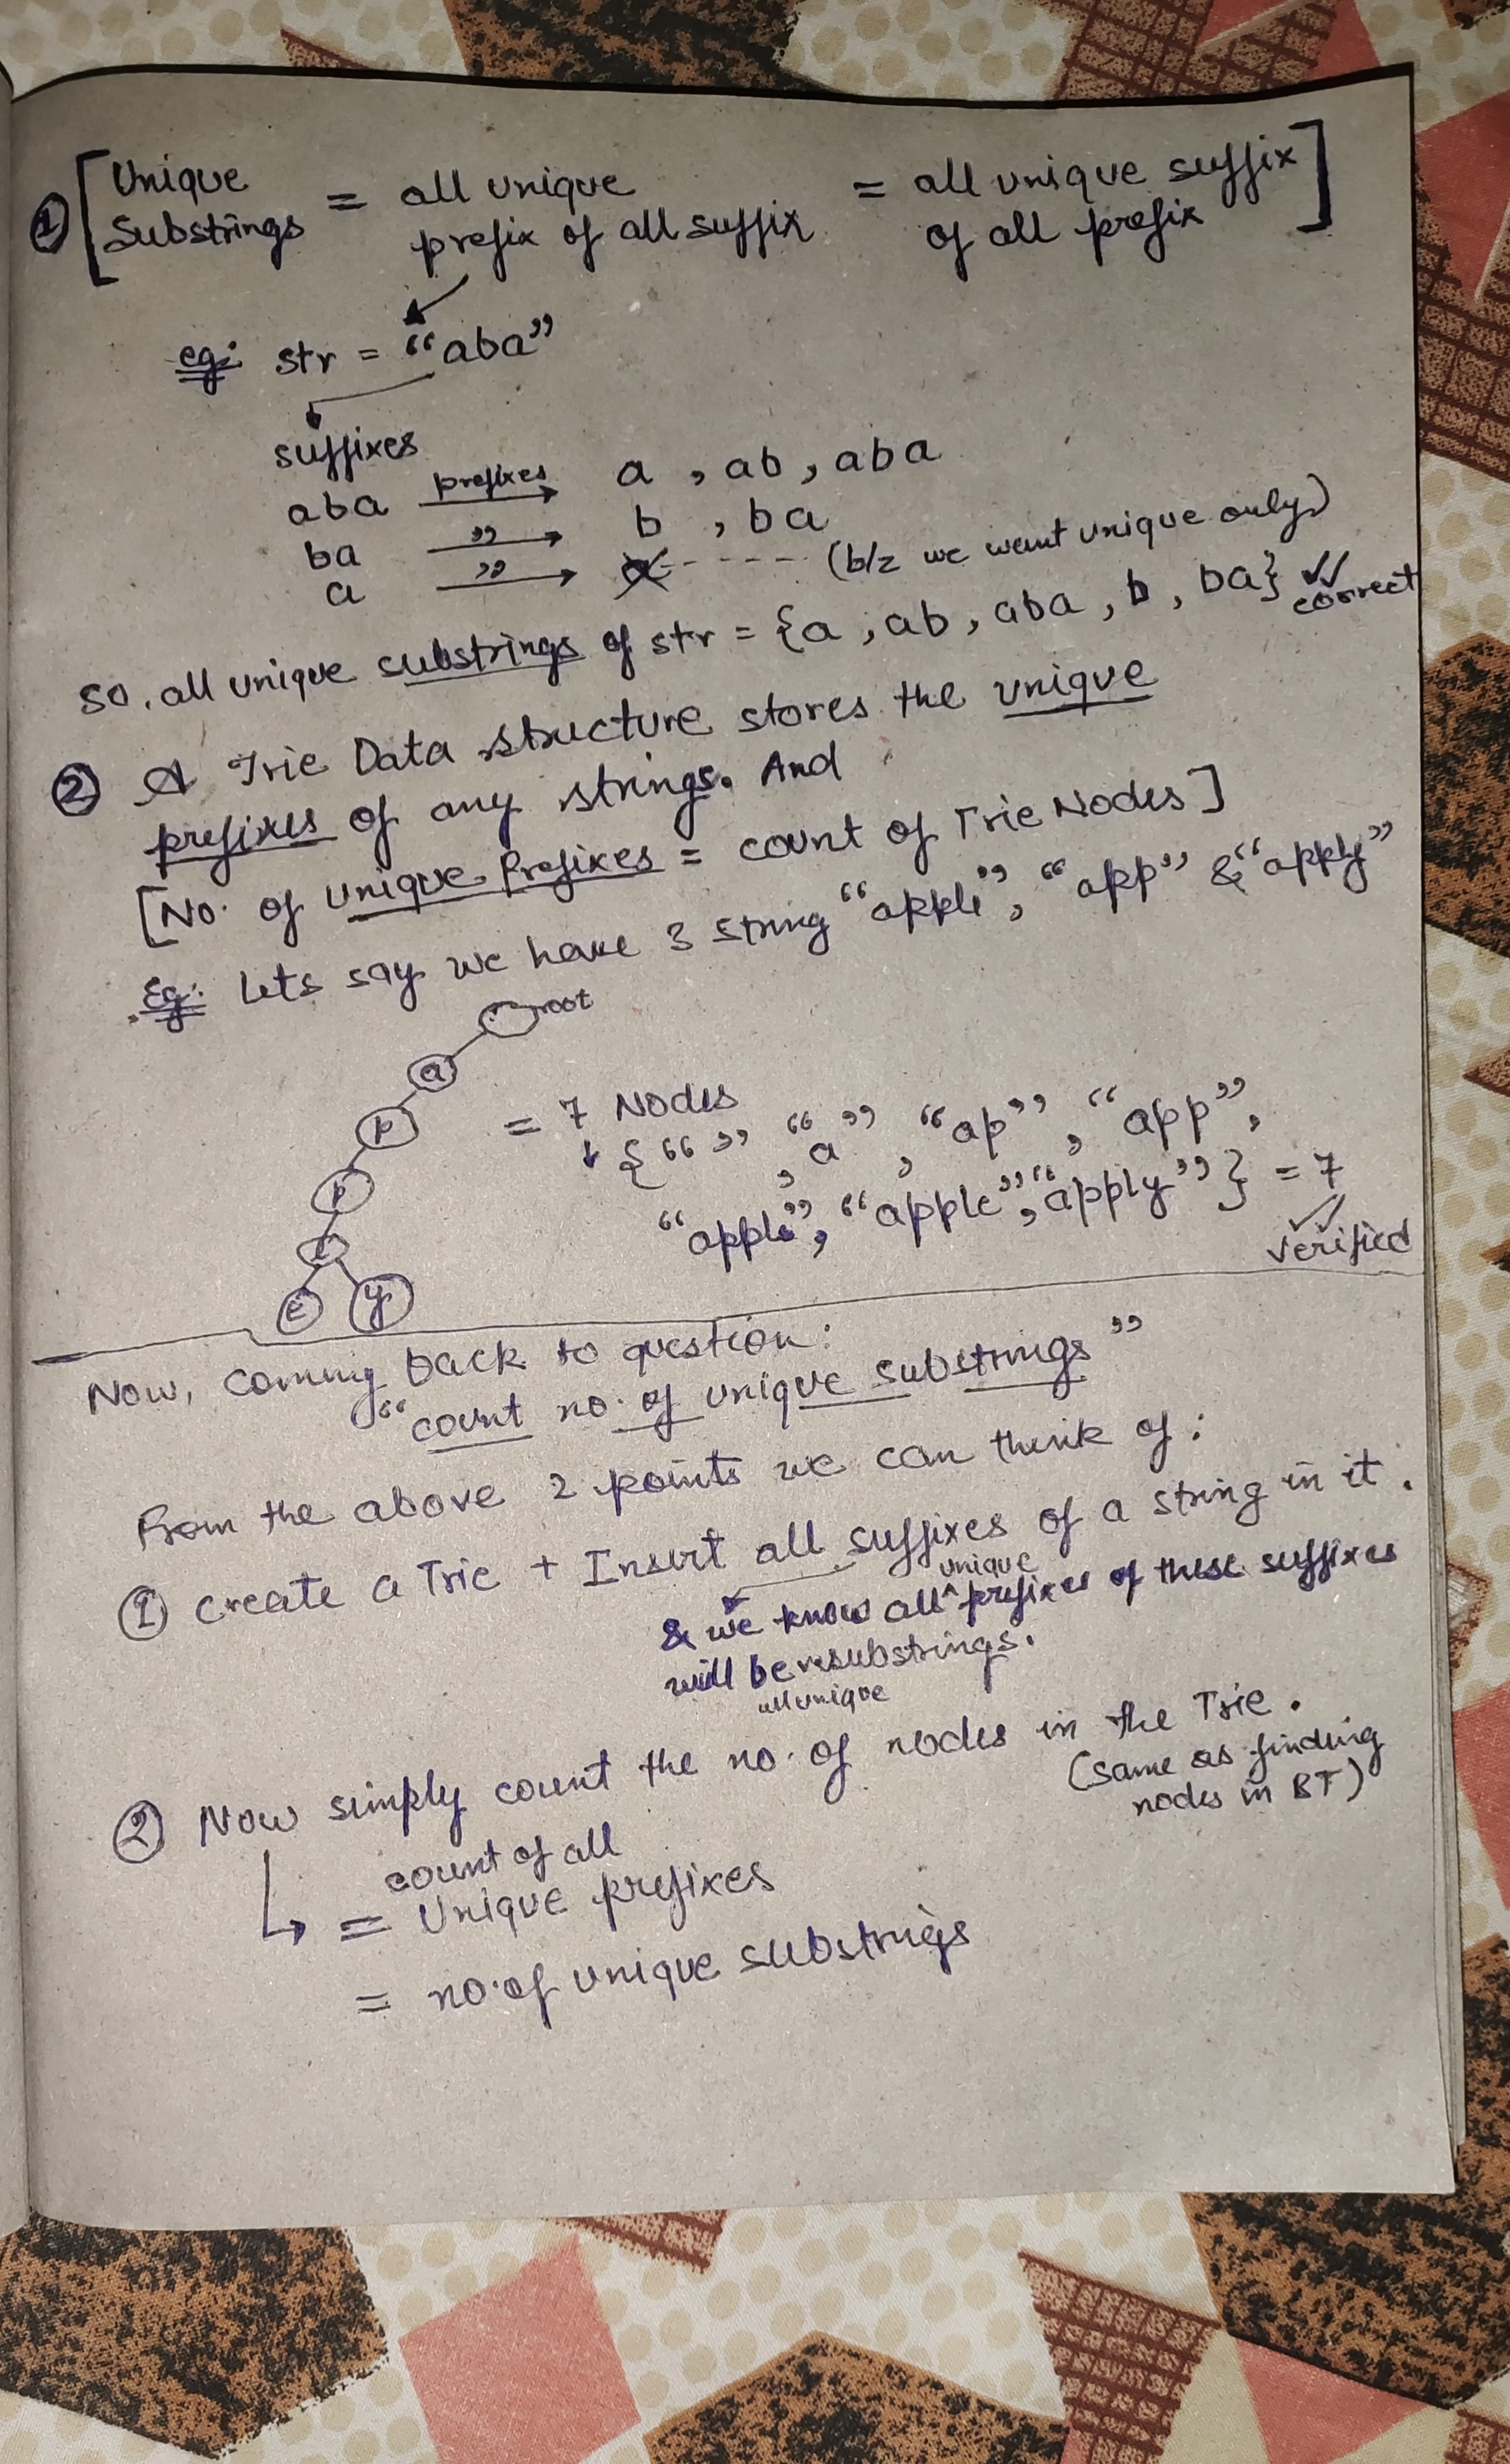 ① [Unique Substrings = all unique prefix of all suffix = all unique suffix of all prefix]
eg: str = "aba"
suffixes
aba prefixes→ a , ab , aba
ba "→ b , ba
a "→ a - - - - (b/z we want unique only)
So, all unique substrings of str = {a , ab , aba , b , ba} correct
② A Trie Data structure stores the unique
prefixes of any strings. And
[No. of Unique Prefixes = count of Trie Nodes]
Eg: Lets say we have 3 string "apple", "app" & "apply"
root
a
p
p
l
e y
= 7 Nodes
↓ {" ", "a", "ap", "app",
"appl", "apple", "apply"} = 7
verified
Now, coming back to question:
"count no. of unique substrings"
From the above 2 points we can think of:
① Create a Trie + Insert all suffixes of a string in it.
& we know all ^unique prefixes of these suffixes
will be substrings.
all unique
② Now simply count the no. of nodes in the Trie.
(same as finding
nodes in BT)
↳ = count of all
Unique prefixes
= no. of unique substrings